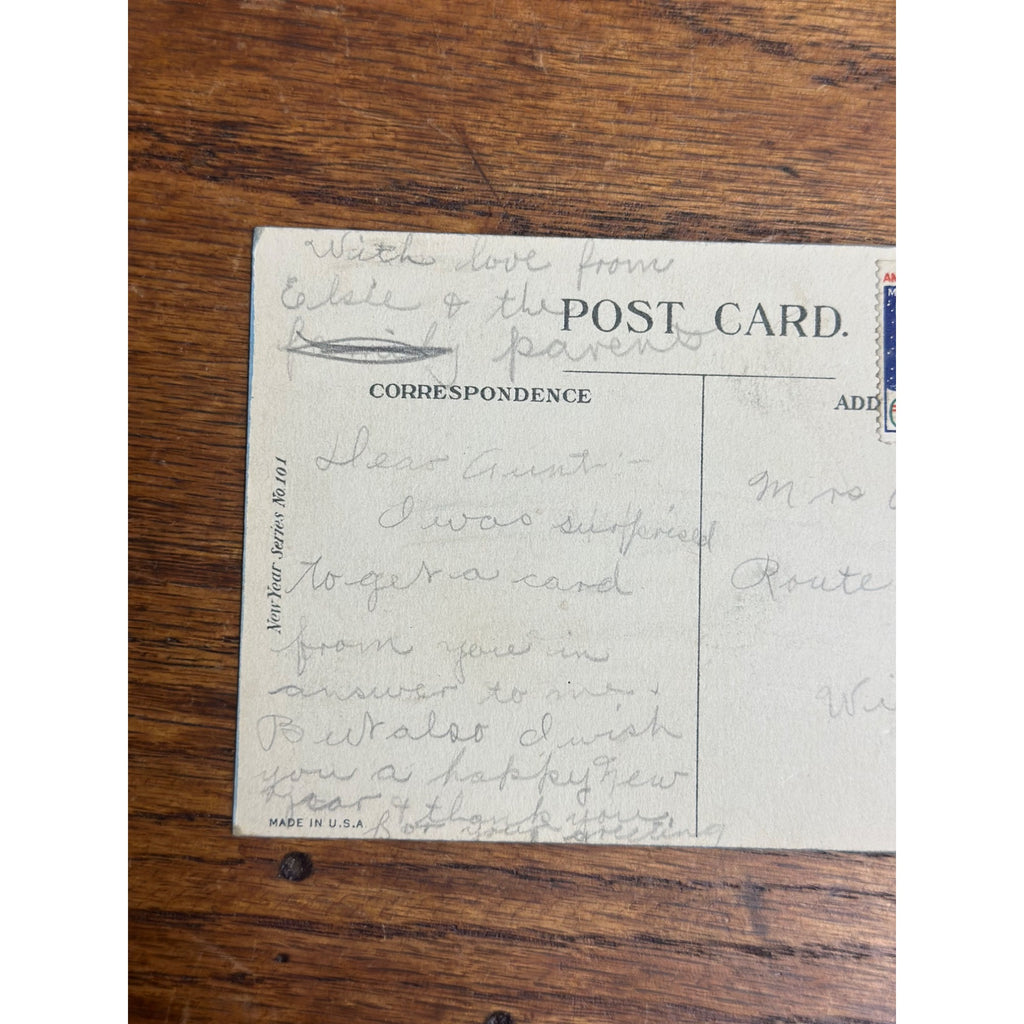 With love from
Elsie & the
family parents
POST CARD.
CORRESPONDENCE
ADD
New Year Series No. 101
Dear Aunt:-
I was surprised
to get a card
from you in
answer to me.
But also I wish
you a happy New
Year & thank you
for your greeting
MADE IN U.S.A
Mrs
Route
Wi
AM
M